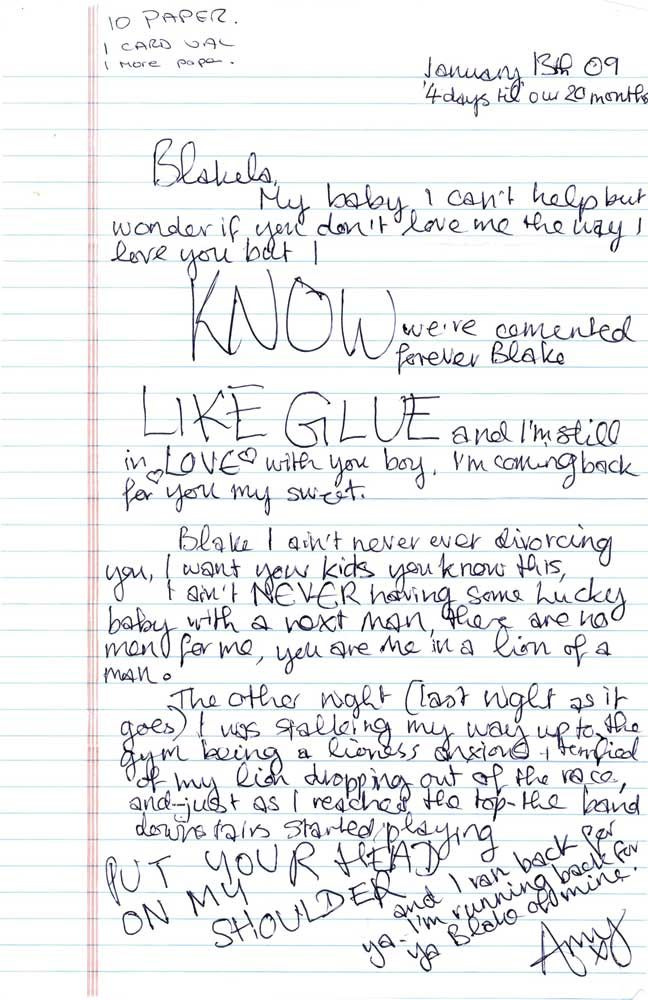 10 PAPER.
1 CARD VAL
1 More paper.
January 13th 09
'4 days til' our 20 months
Blakela,
My baby, I can't help but
wonder if you don't love me the way I
love you but I
KNOW we're cemented
forever Blake
LIKE GLUE and I'm still
in LOVE with you boy, I'm coming back
for you my sweet.
Blake I ain't never ever divorcing
you, I want your kids you know this,
I ain't NEVER having some
baby with a next man, there are no
men for me, you are me in a lion of a
man.
The other night (last night as it
goes) I was stalking my way up to the
gym being a lioness anxious + terrified
of my lion dropping out of the race,
and just as I reached the top - the band
downstairs started playing
PUT YOUR HEAD
ON MY
SHOULDER
and I ran back for
ya - I'm running back for
ya Blake of mine.
Amy